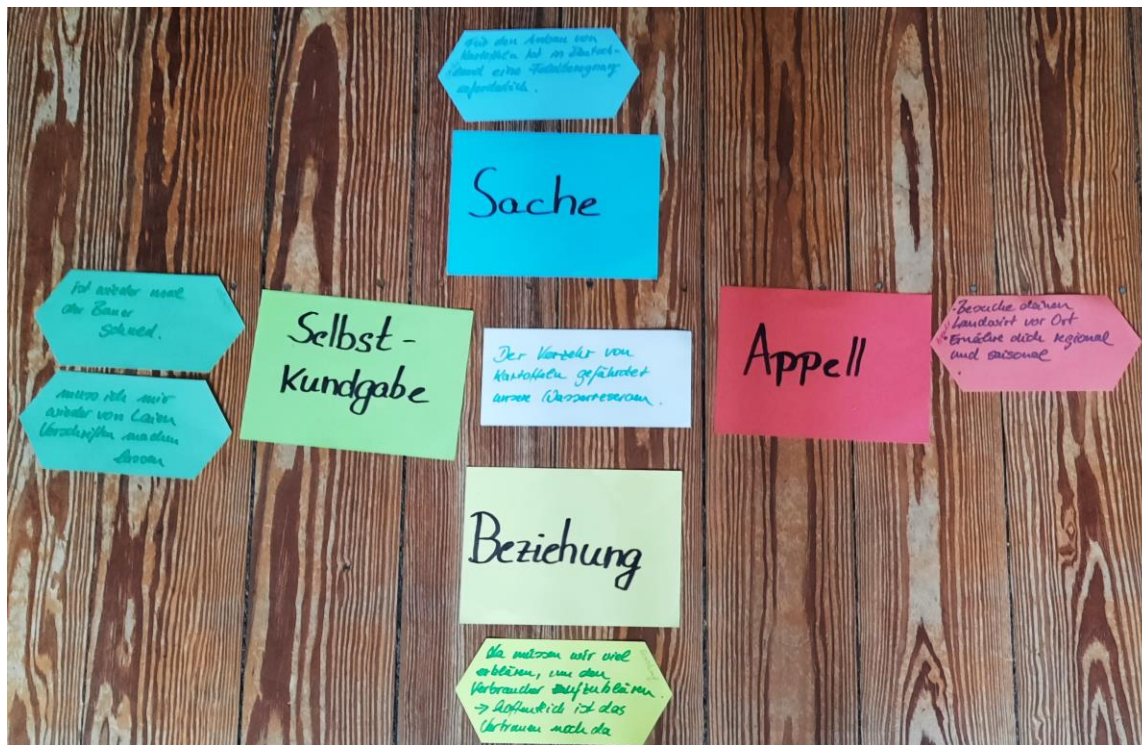 Für den Anbau von
Kartoffeln ist in Deutsch-
land eine Feldberegnung
erforderlich.
Sache
Ist wieder mal
der Bauer
Schuld.
muss ich mir
wieder von Laien
Vorschriften machen
lassen
Selbst-
Kundgabe
Der Verzehr von
Kartoffeln gefährdet
unsere Wasserreserven.
Appell
·Besuche deinen
Landwirt vor Ort
·Ernähre dich regional
und saisonal
Beziehung
da müssen wir viel
erklären, um den
Verbraucher aufzuklären.
→ hoffentlich ist das
Vertrauen noch da